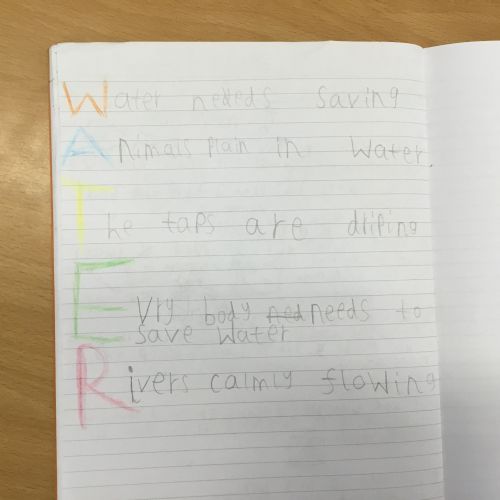 Water neteds saving
Animals plain in water.
The taps are driping
Evry body ned needs to
save water
Rivers calmly flowing